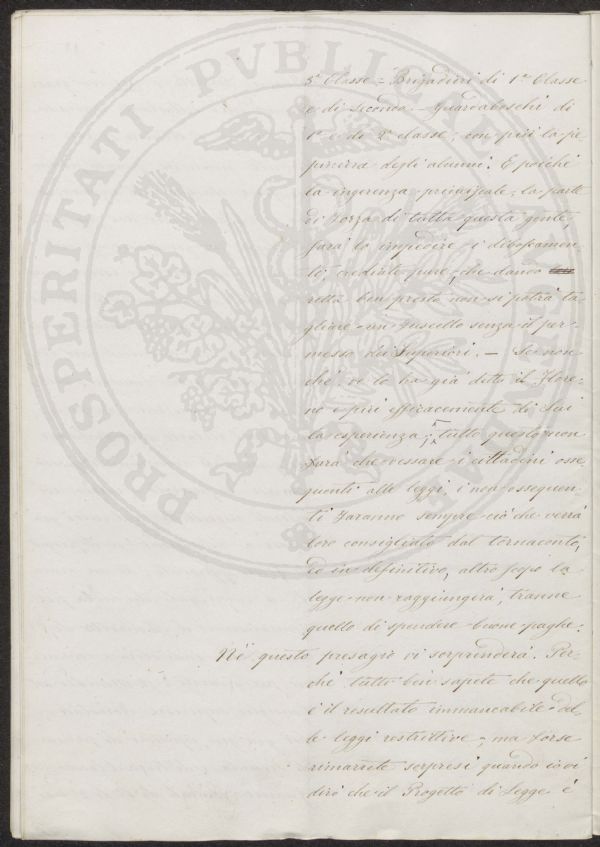 3ª Classe = Brigadieri di 1ª Classe
e di Seconda - Guardaboschi di
1ª e di 2ª classe; con più la pe
degli alunni. E poiché
la ingerenza principale, la parte
di forza di tutta questa gente,
sarà lo impedire i diboscamen
ti, crediate pure, che dando
retta ben presto non si potrà ta
gliare un fuscello senza il per-
messo dei Superiori. — Se non
ché, ve lo ha già detto il Flore
no e più efficacemente di lui
la esperienza; tutto questo non
farà che vessare i cittadini osse
quenti alle leggi, i non ossequen
ti faranno sempre ciò che verrà
loro consigliato dal tornaconto,
ed in definitivo, altro scopo la
legge non raggiungerà, tranne
quello di spendere buone paghe.
Né questo presagio vi sorprenderà. Per-
ché tutti ben sapete che quello
è il resultato immancabile del
le leggi restrittive; ma forse
rimarrete sorpresi quando io vi
dirò che il Progetto di Legge è
PROSPERITATI PVBLICAE AVGENDAE